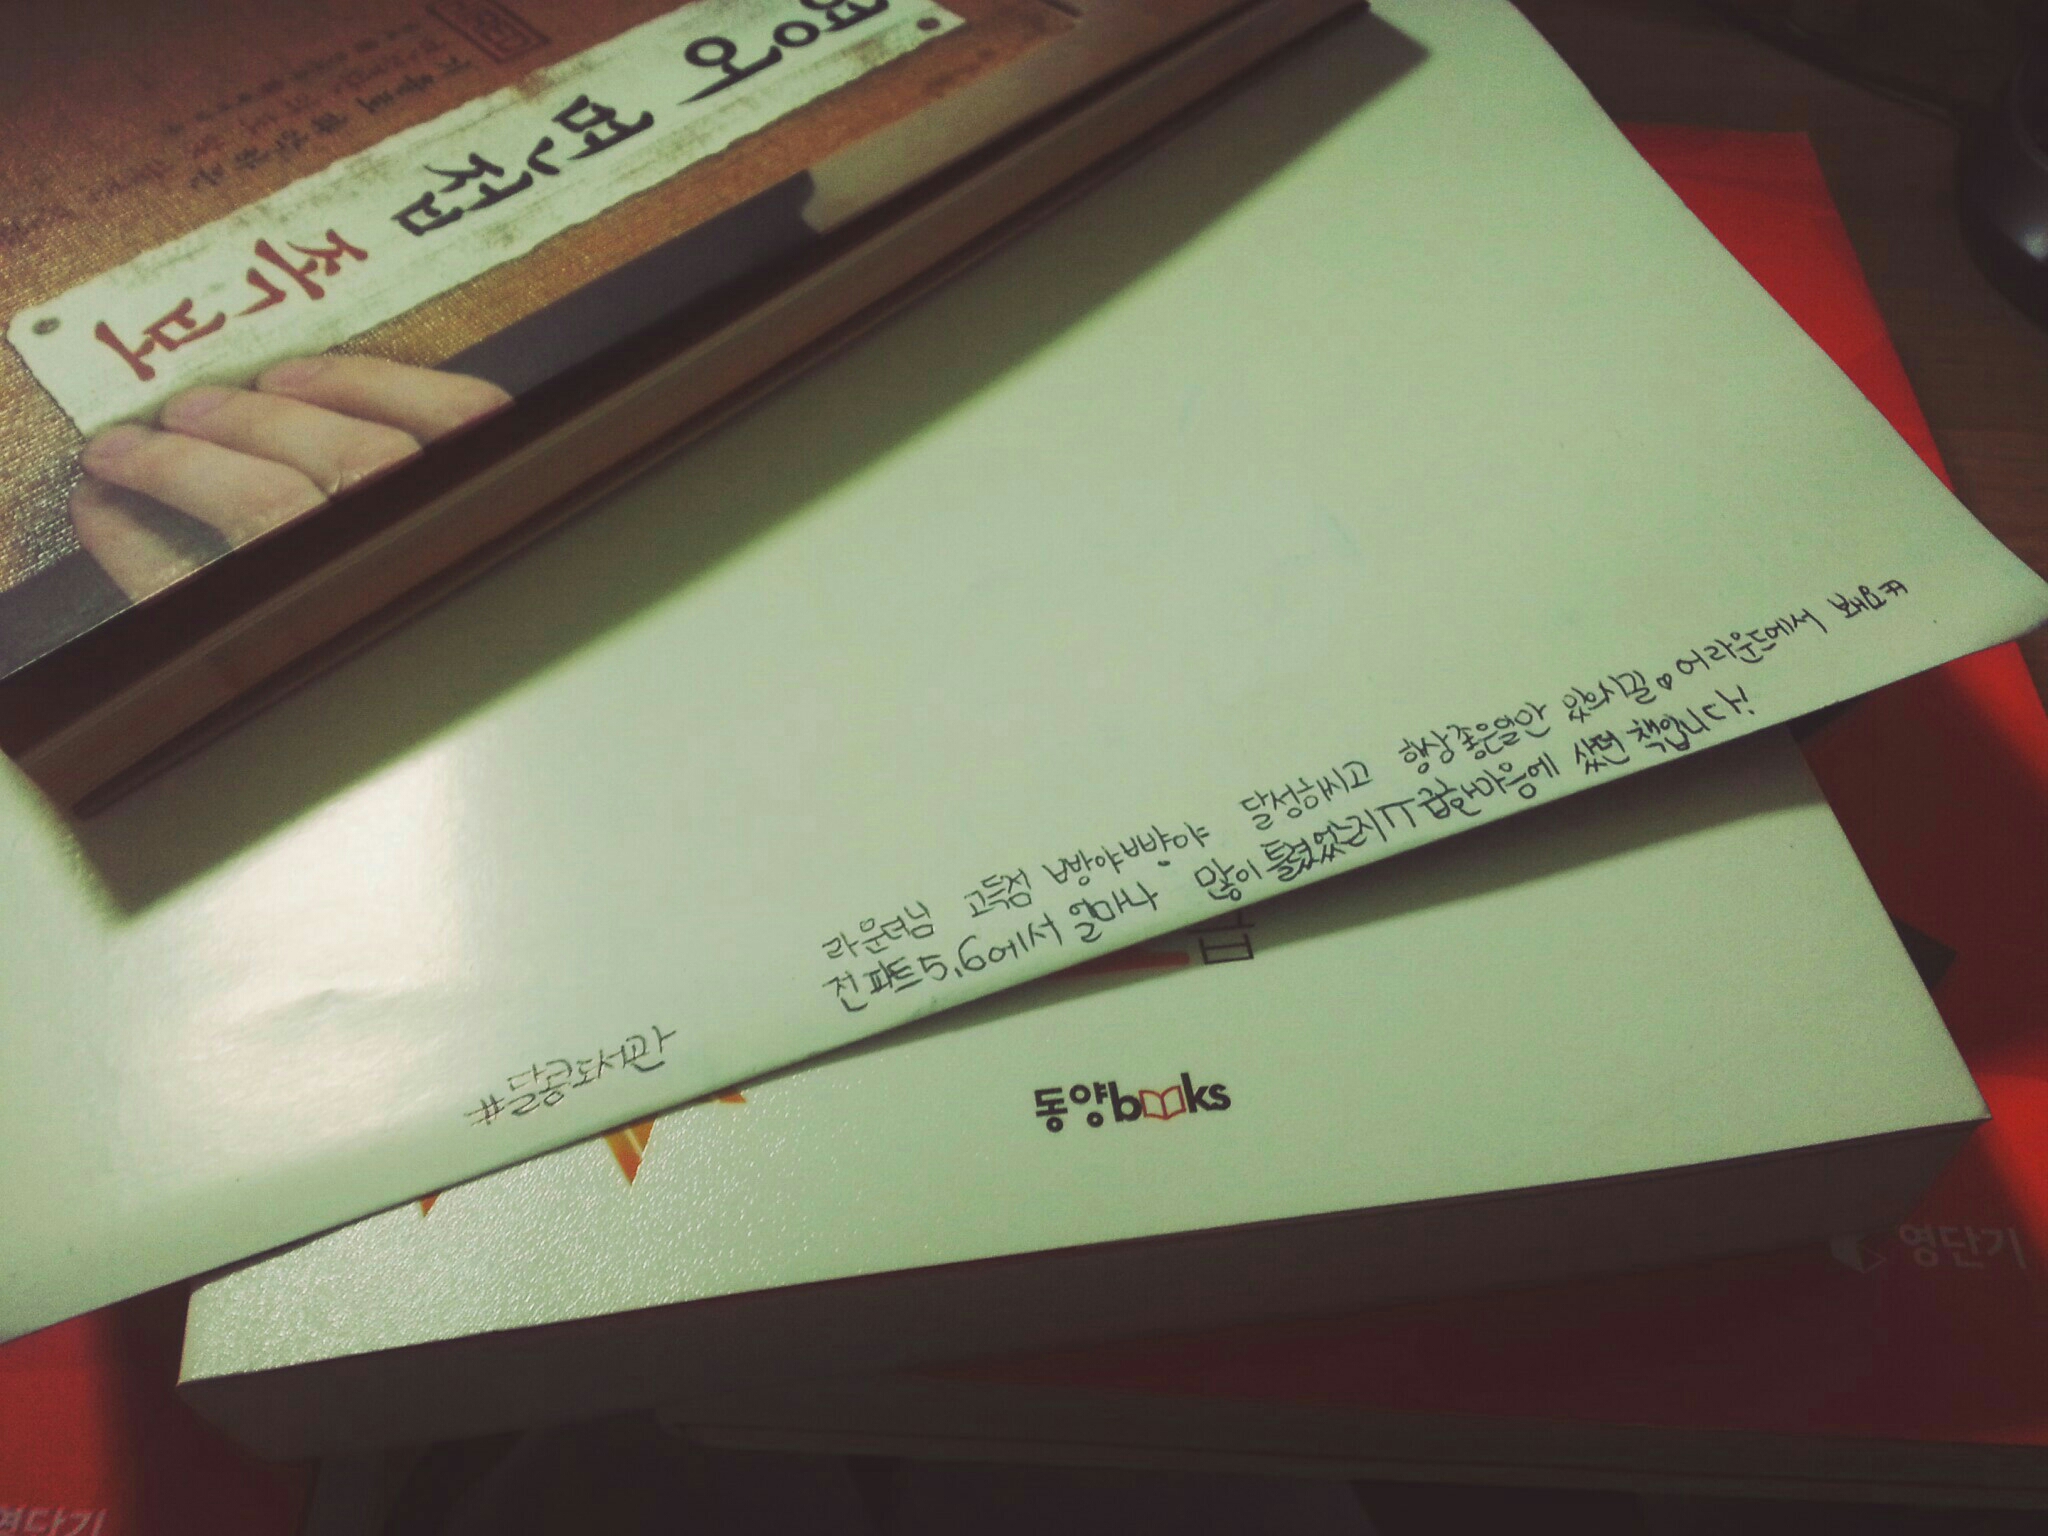 영어 면접 족보
라운더님 고득점 빠방야빠방야 달성하시고 항상 좋은일만 있으시길♥ 어라운드에서 봬요ㅋ
전 파트5,6에서 얼마나 많이 틀렸었는지ㅜㅜ 급한마음에 샀던 책입니다!
#달콩도서관
동양books
영단기
영단기